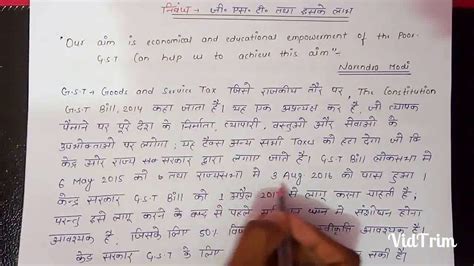 निबंध - जी॰ एस॰ टी॰ तथा इसके लाभ
"Our aim is economical and educational empowerment of the Poor.
G.S.T Can help us to achieve this aim"-
Narendra Modi
G.S.T → Goods and Service Tax जिसे राजकीय तौर पर, The Constitution
G.S.T Bill, 2014 कहा जाता है। यह एक अप्रत्यक्ष कर है, जो व्यापक
पैमाने पर पूरे देश के निर्माता, व्यापारी, वस्तुओं और सेवाओं के
उपभोक्ताओं पर लगेगा; यह टैक्स अन्य सभी Taxes को हटा देगा जो कि
केंद्र और राज्य सरकार द्वारा लगाए जाते हैं। G.S.T Bill लोकसभा में
6 May 2015 को व राज्यसभा में 3 Aug 2016 को पास हुआ।
केन्द्र सरकार G.S.T Bill को 1 अप्रैल 201 से लागू करना चाहती है;
परन्तु इसे लागू करने के पहले में संशोधन होना
आवश्यक है, जिसके लिए 50% आवश्यक है।
केंद्र सरकार G.S.T के लिए
VidTrim